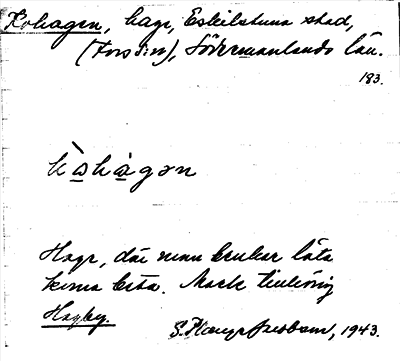 Kohagen, hage, Eskilstuna stad,
(Fors sn), Södermanlands län.
183.
kòhàgən
Hage, där man brukar låta
korna beta. Mark tillhörig
Hagby.
1943.